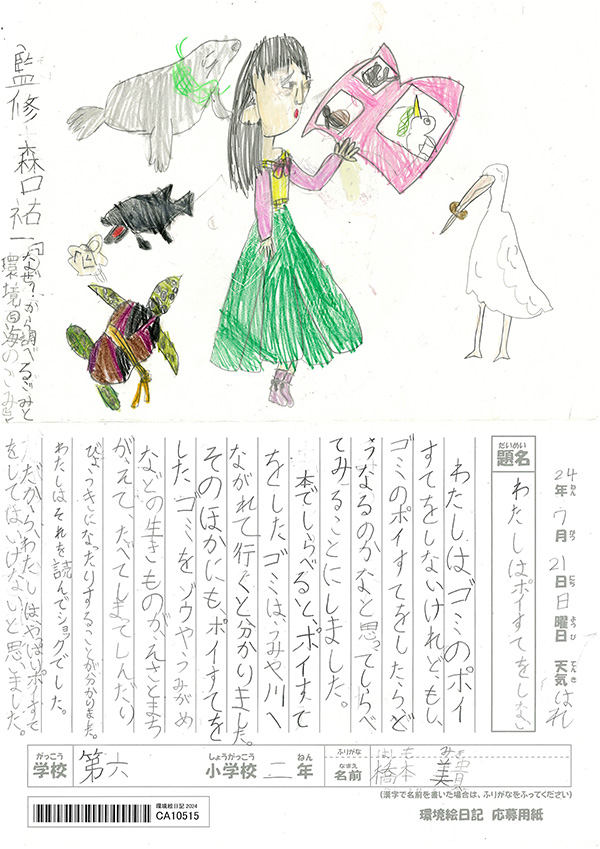 監修 森口祐一
「なぜ?から調べるごみと
環境⑤海のごみ」
24年 7月 21日 日曜日 天気 はれ
ねん がつ にち ようび てんき
だいめい
題名
わたしはポイすてをしない
わたしは、ゴミのポイ
すてをしないけれど、もし、
ゴミのポイすてをしたら、ど
うなるのかなと思ってしらべ
てみることにしました。
本でしらべると、ポイすて
をしたゴミは、うみや川へ
ながれて行くと分かりました。
そのほかにも、ポイすてを
したゴミを、ゾウや、うみがめ
などの生きものが、えさとまち
がえて、たべてしまってしんだり
びょうきになったりすることが分かりました。
わたしはそれを読んでショックでした。
だから、わたしはやっぱりポイすて
をしてはいけないと思いました。
がっこう
学校
第六
しょうがっこう
小学校
二
ねん
年
ふりがな
はしもと み
なまえ
名前
橋本 美
(漢字で名前を書いた場合は、ふりがなをふってください)
環境絵日記 2024
CA10515
環境絵日記 応募用紙